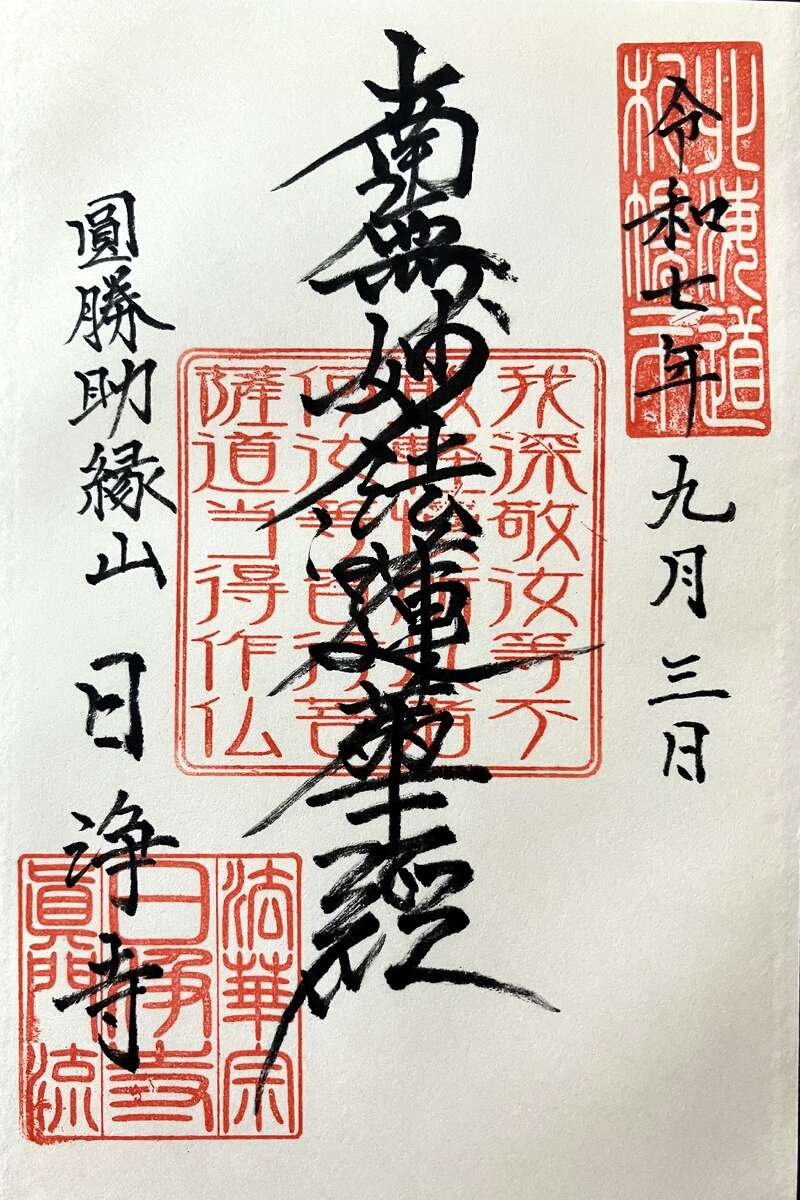 北海道
札幌市
令和七年九月三日
南無妙法蓮華經
我深敬汝等不
敢軽慢所以者
何汝等皆行菩
薩道当得作仏
圓勝助縁山 日浄寺
法華宗
日浄寺
眞門流